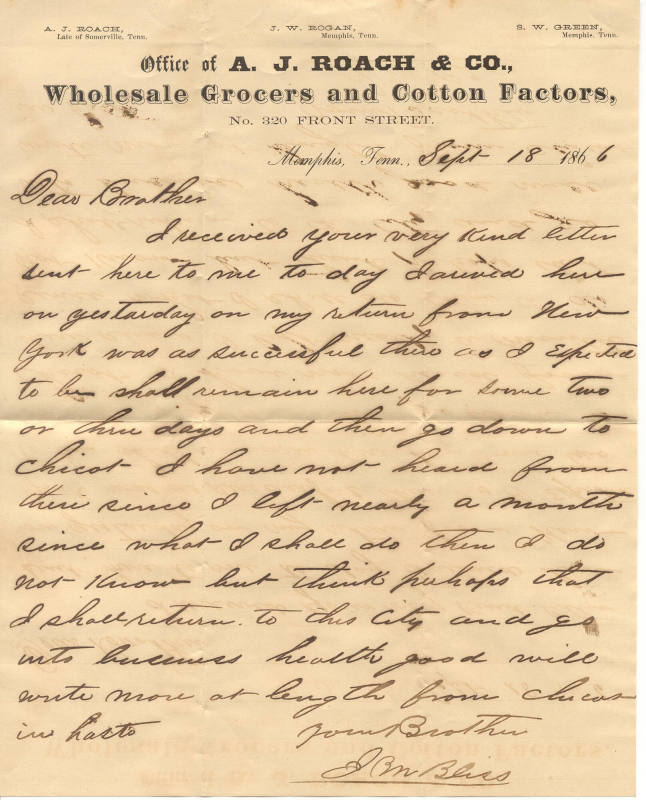 A. J. ROACH, J. W. ROGAN, S. W. GREEN,
Late of Somerville, Tenn. Memphis, Tenn. Memphis, Tenn.
Office of A. J. ROACH & CO.,
Wholesale Grocers and Cotton Factors,
No. 320 FRONT STREET.
Memphis, Tenn., Sept 18 1866
Dear Brother
I received your very kind letter
sent here to me to day I arived here
on yestarday on my return from New
York was as successful there as I Expected
to be shall remain here for some two
or three days and then go down to
Chicot I have not heard from
there since I left nearly a month
since what I shall do then I do
not know but think perhaps that
I shall return to this City and go
into business health good will
write more at length from Chicot
in haste your Brother
J M Bliss